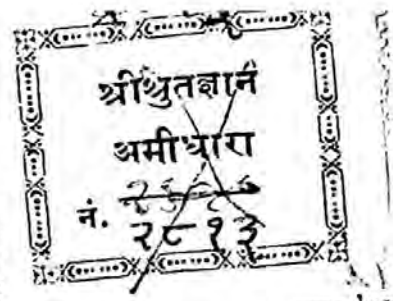 श्रीश्रुतज्ञान
अमीधारा
नं.
२८१३